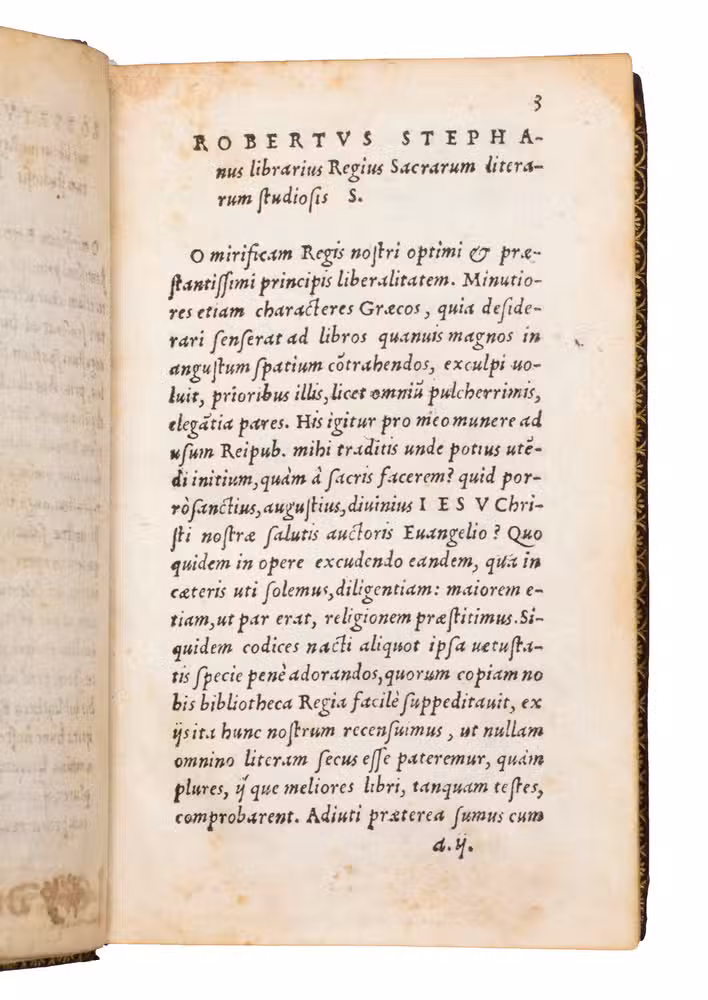 3
ROBERTVS STEPHA-
nus librarius Regius Sacrarum litera-
rum ſtudioſis S.
O mirificam Regis noſtri optimi & præ-
ſtantiſſimi principis liberalitatem. Minutio-
res etiam characteres Græcos, quia deſide-
rari ſenſerat ad libros quanuis magnos in
anguſtum ſpatium cõtrahendos, exculpi uo-
luit, prioribus illis, licet omniũ pulcherrimis,
elegãtia pares. His igitur pro meo munere ad
uſum Reipub. mihi traditis unde potius utẽ-
di initium, quàm à ſacris facerem? quid por-
rò ſanctius, auguſtius, diuinius IESV Chri-
ſti noſtræ ſalutis auctoris Euangelio? Quo
quidem in opere excudendo eandem, qua in
cæteris uti ſolemus, diligentiam: maiorem e-
tiam, ut par erat, religionem præſtitimus. Si-
quidem codices nacti aliquot ipſa uetuſta-
tis ſpecie penè adorandos, quorum copiam no
bis bibliotheca Regia facilè ſuppeditauit, ex
ijs ita hunc noſtrum recenſuimus, ut nullam
omnino literam ſecus eſſe pateremur, quàm
plures, ij que meliores libri, tanquam teſtes,
comprobarent. Adiuti præterea ſumus cum
a.ij.